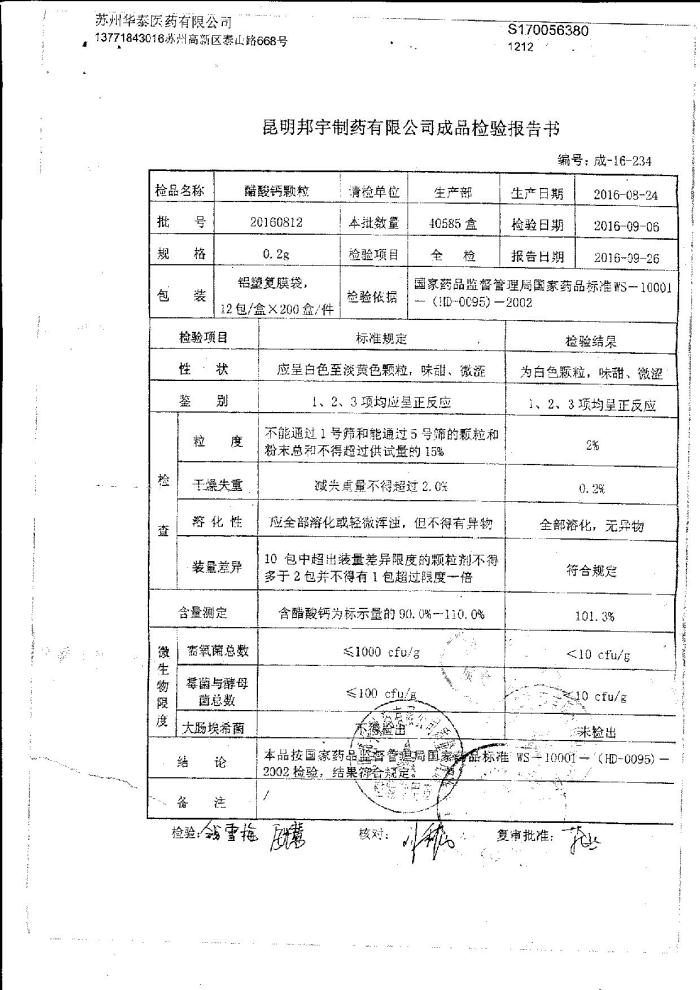 苏州华泰医药有限公司
13771843016苏州高新区泰山路668号
S170056380
1212
昆明邦宇制药有限公司成品检验报告书
编号：成-16-234
检品名称 醋酸钙颗粒 请检单位 生产部 生产日期 2016-08-24
批 号 20160812 本批数量 40585 盒 检验日期 2016-09-06
规 格 0.2g 检验项目 全 检 报告日期 2016-09-26
包 装 铝塑复膜袋，
12包/盒×200盒/件
检验依据 国家药品监督管理局国家药品标准WS－10001
－（HD-0095）－2002
检验项目 标准规定 检验结果
性 状 应呈白色至淡黄色颗粒，味甜、微涩 为白色颗粒，味甜、微涩
鉴 别 1、2、3 项均应呈正反应 1、2、3项均呈正反应
检查
粒 度 不能通过1号筛和能通过5号筛的颗粒和
粉末总和不得超过供试量的15%
2%
干燥失重 减失重量不得超过 2.0% 0.2%
溶 化 性 应全部溶化或轻微浑浊，但不得有异物 全部溶化，无异物
装量差异 10 包中超出装量差异限度的颗粒剂不得
多于2包并不得有1包超过限度一倍
符合规定
含量测定 含醋酸钙为标示量的90.0%－110.0% 101.3%
微生物限度
需氧菌总数 ≤1000 cfu/g <10 cfu/g
霉菌与酵母
菌总数
≤100 cfu/g <10 cfu/g
大肠埃希菌 不得检出 未检出
结 论 本品按国家药品监督管理局国家药品标准 WS－10001－（HD-0095）－
2002 检验，结果符合规定。
备 注 /
检验： 核对： 复审批准：